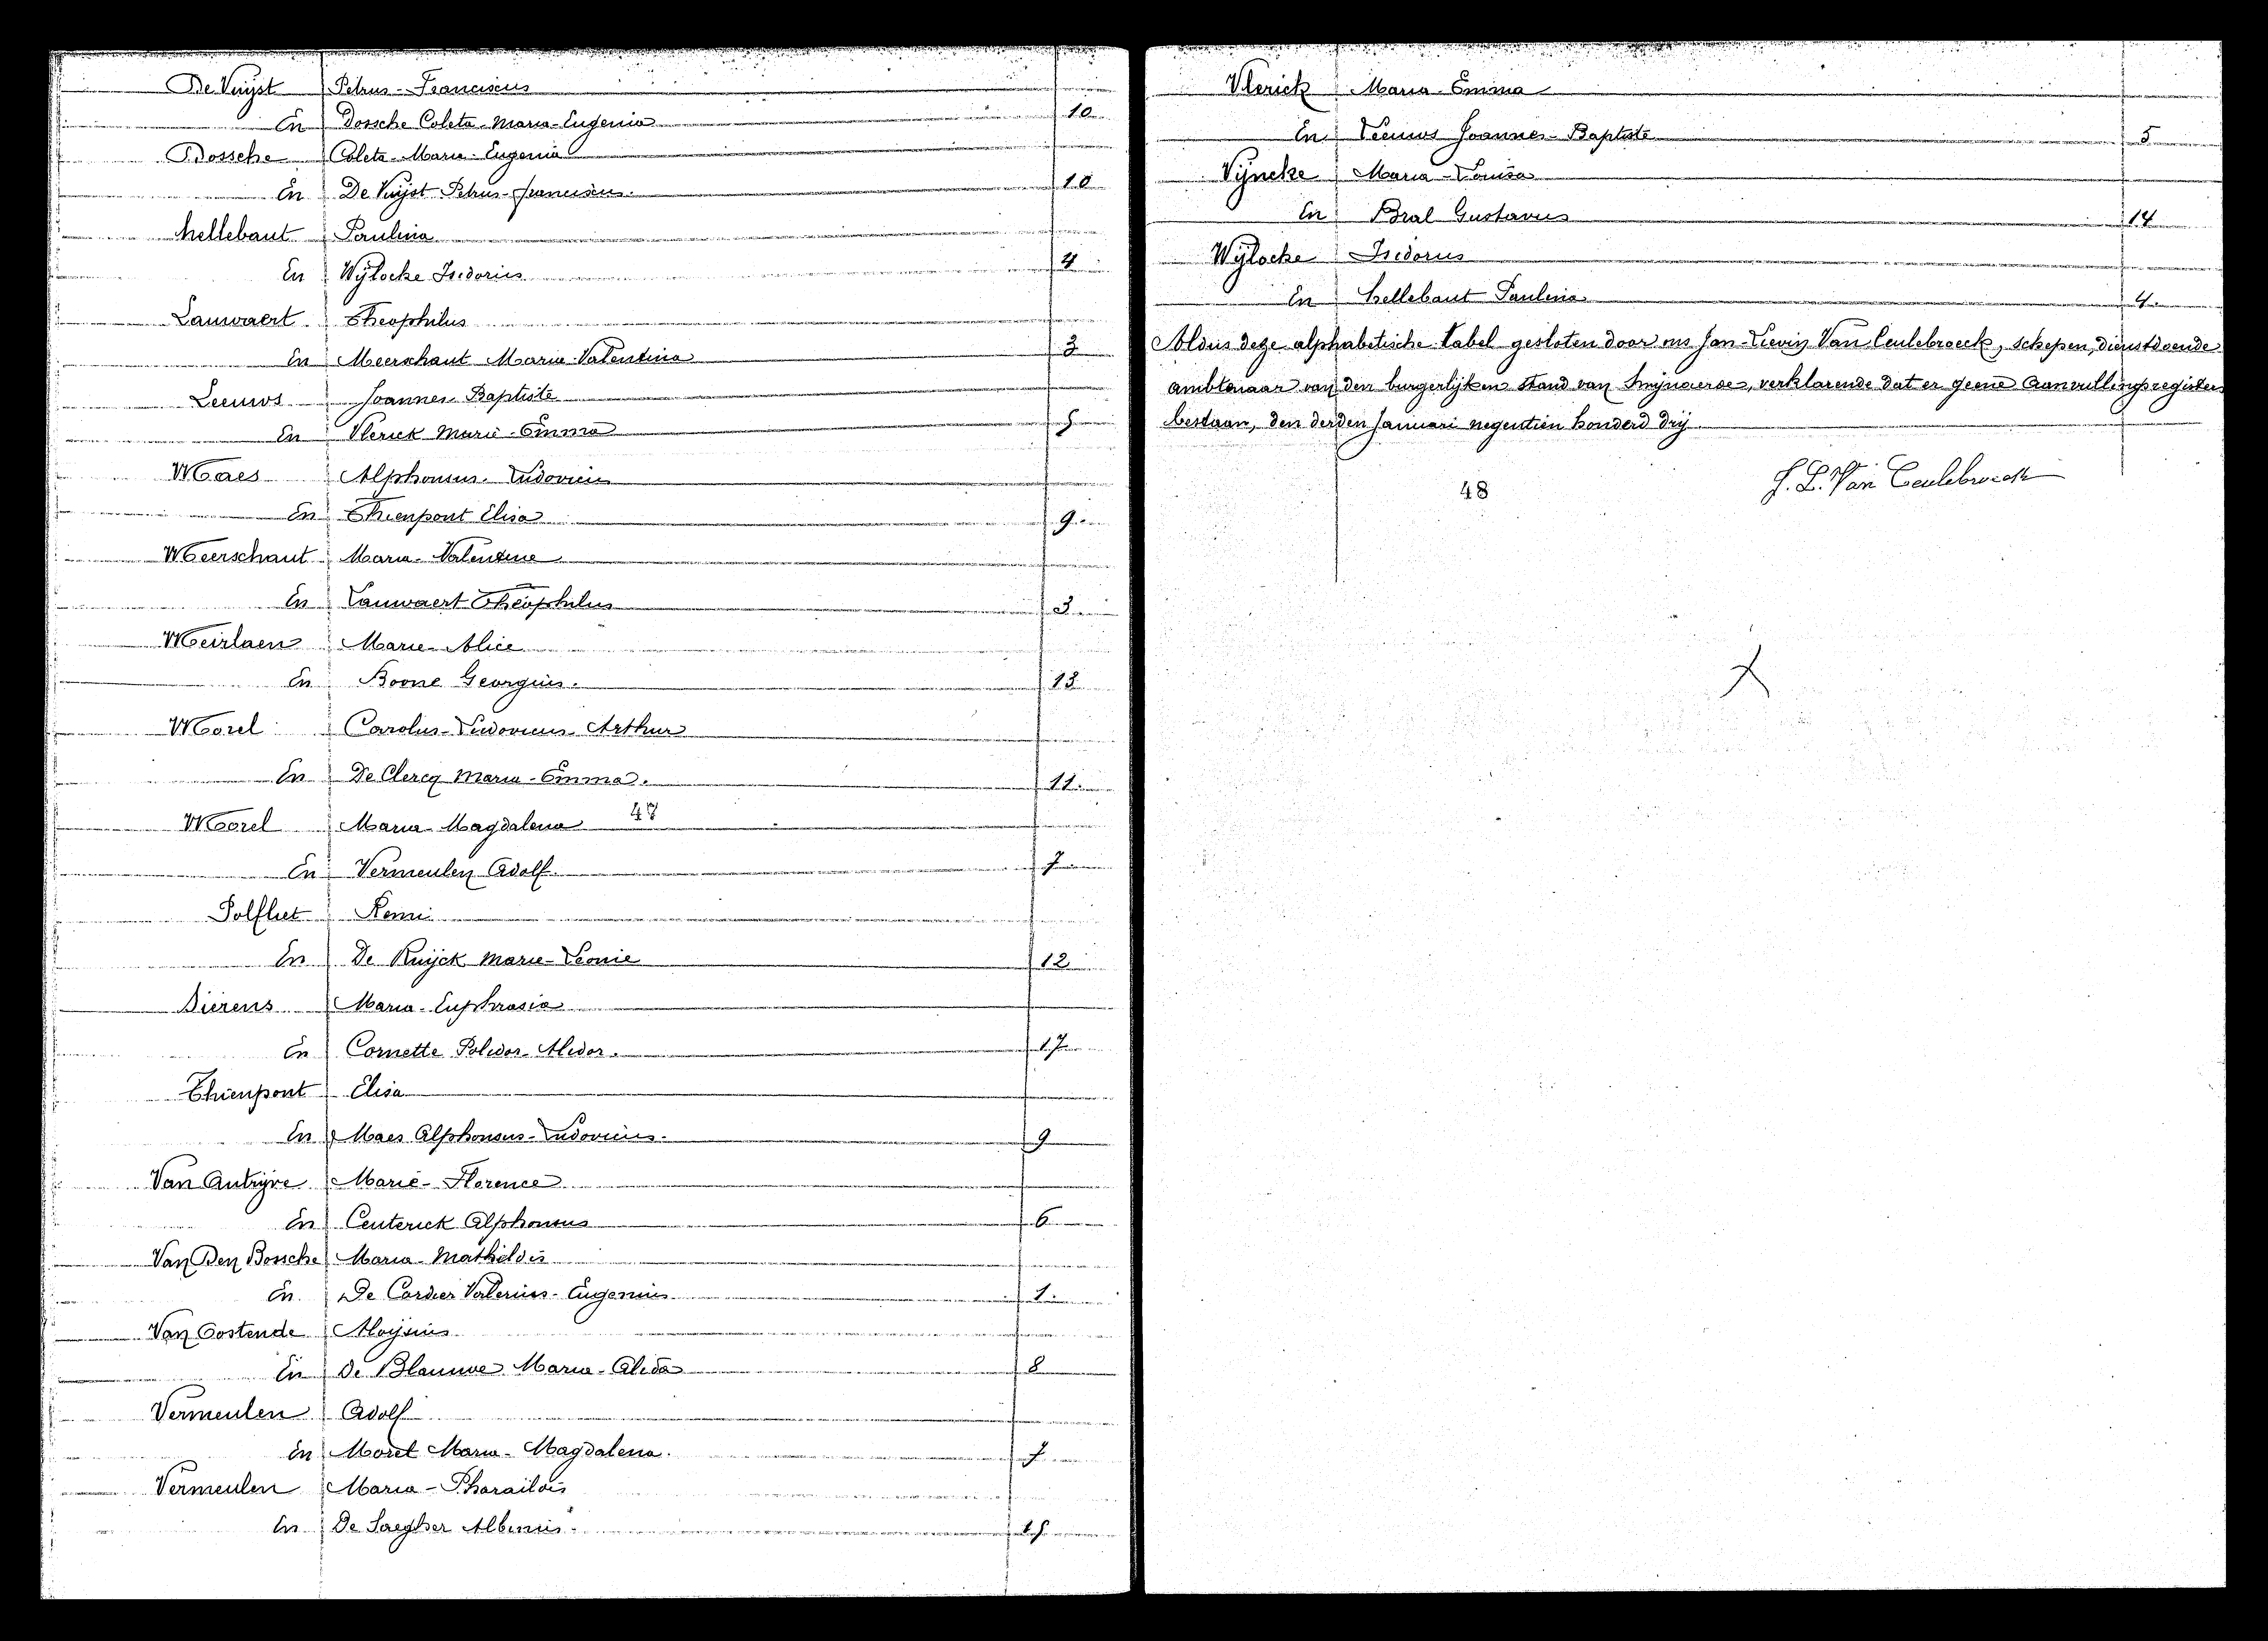 De Vuijst Petrus-Franciscus
En Dossche Coleta-Maria-Eugenia 10
Dossche Coleta-Maria-Eugenia
En De Vuijst Petrus-Franciscus. 10
Hellebaut Paulina
En Wÿlocke Isidorius 4
Lauwaert Theophilus
En Meerschaut Maria-Valentina 3
Leeuws Joannes Baptiste
En Vlerick Marie-Emma 5
Maes Alphonsus-Ludovicus
En Thienpont Elisa 9
Meerschaut Maria-Valentine
En Lauwaert Theophilus 3
Meirlaen Marie-Alice
En Boone Georgius. 13
Morel Carolus-Ludovicus-Arthur
En De Clercq Maria-Emma. 11
Morel Maria Magdalena 47
En Vermeulen Adolf. 7
Polfliet Remi
En De Ruijck Marie-Leonie 12
Sierens Maria-Euphrasia
En Cornette Polidor-Alidor. 17
Thienpont Elisa
En Maes Alphonsus-Ludovicus. 9
Van Autrijve Marie-Florence
En Ceuterick Alphonsus 6
Van Den Bossche Maria-Mathildis
En De Cordier Valerius-Eugenius 1
Van Oostende Aloijsius
En De Blauwe Maria-Alida 8
Vermeulen Adolf
En Morel Maria-Magdalena. 7
Vermeulen Maria-Pharaildis
En De Saegher Albinus. 15
Vlerick Maria-Emma
En Leeuws Joannes-Baptiste 5
Vÿncke Maria-Louisa
En Bral Gustavus 14
Wÿlocke Isidorus
En Hellebaut Paulina 4
Aldus deze alphabetische tabel gesloten door ons Jan-Lievin Van Ceulebroeck, schepen, dienstdoende
ambtenaar van den burgerlijken stand van Smijnaerde, verklarende dat er geene aanvullingsregisters
bestaan, den derden Januari negentien honderd drij
48
J. L. Van Ceulebroeck